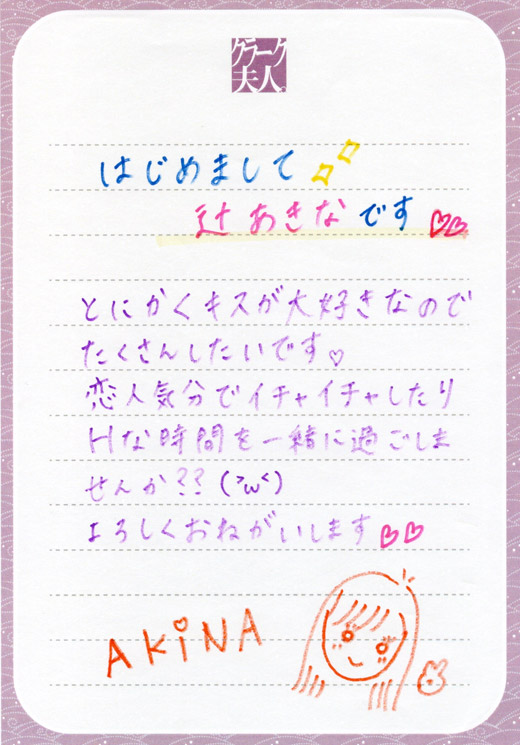 クラーク
夫人
はじめまして
辻あきなです♡♡
とにかくキスが大好きなので
たくさんしたいです♡
恋人気分でイチャイチャしたり
Hな時間を一緒に過ごしま
せんか??(>ω<)
よろしくおねがいします♡♡
AKiNA